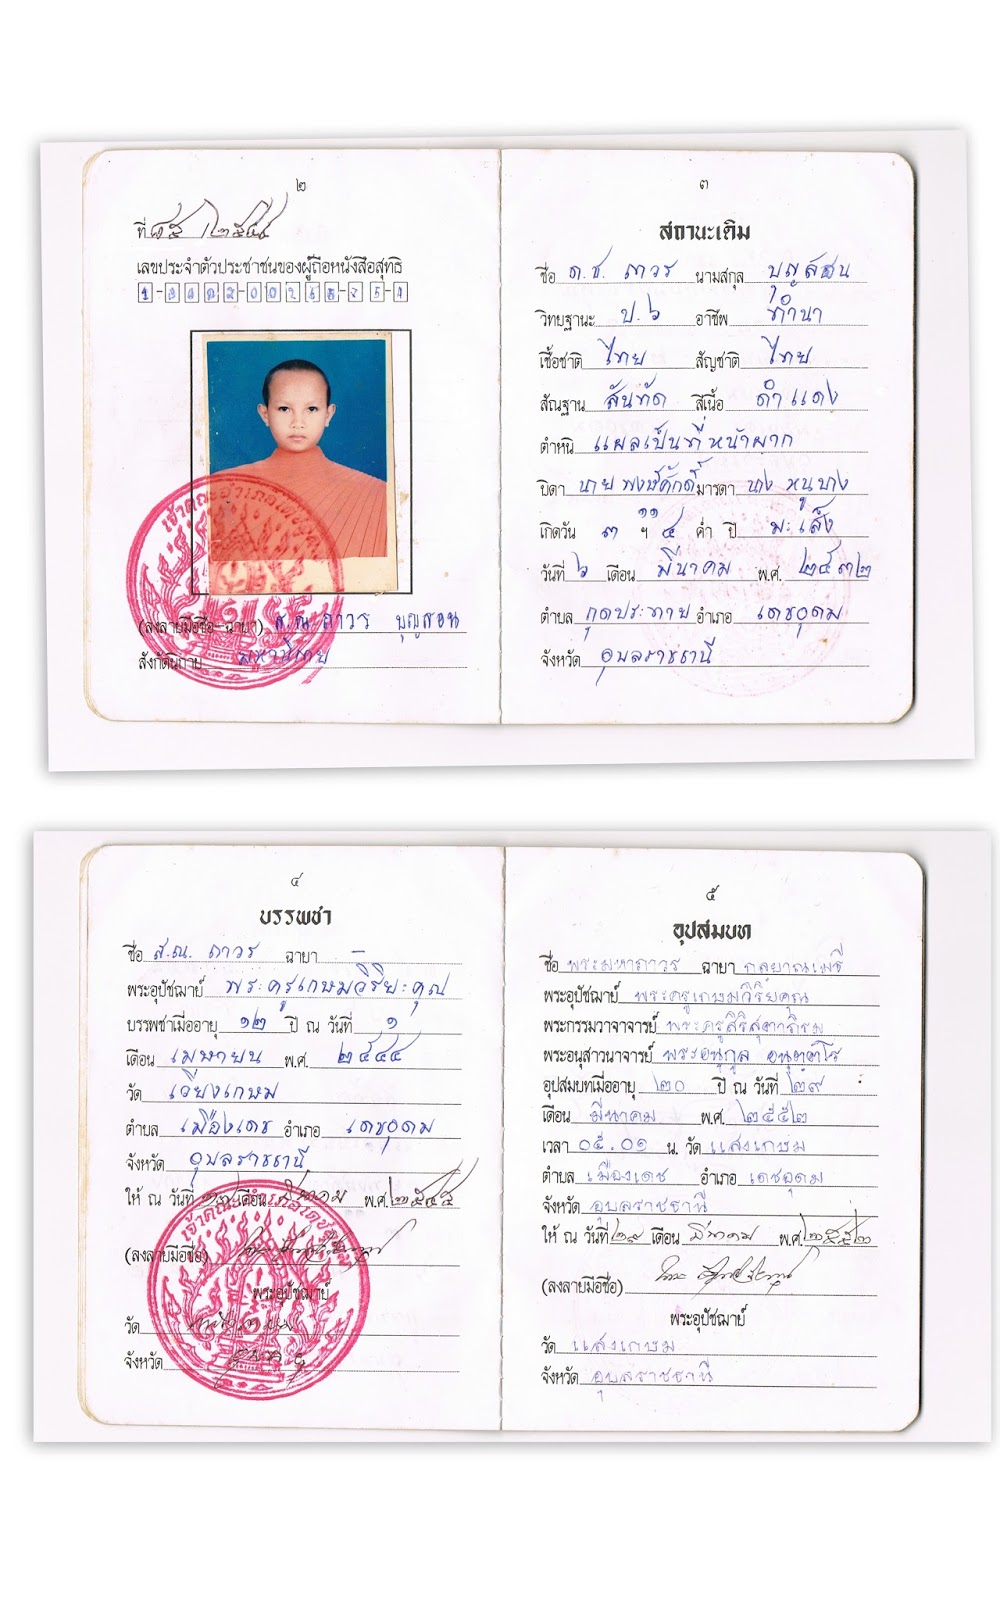 ๒
ที่ ๘๕ / ๒๕๔๔
เลขประจำตัวประชาชนของผู้ถือหนังสือสุทธิ
เจ้าคณะอำเภอเดชอุดม
(ลงลายมือชื่อ-ฉายา) ส.ณ. ถาวร บุญสอน
สังกัดนิกาย มหานิกาย
๓
สถานะเดิม
ชื่อ ด.ช. ถาวร นามสกุล บุญสอน
วิทยฐานะ ป.๖ อาชีพ ทำนา
เชื้อชาติ ไทย สัญชาติ ไทย
สัณฐาน สันทัด สีเนื้อ ดำแดง
ตำหนิ แผลเป็นที่หน้าผาก
บิดา นาย พงษ์ศักดิ์ มารดา นาง หนูบาง
เกิดวัน ๓ ฯ ๔ ค่ำ ปี มะเส็ง
วันที่ ๖ เดือน มีนาคม พ.ศ. ๒๕๓๒
ตำบล กุดประทาย อำเภอ เดชอุดม
จังหวัด อุบลราชธานี
๔
บรรพชา
ชื่อ ส.ณ. ถาวร ฉายา –
พระอุปัชฌาย์ พระครูเกษมวิริยะคุณ
บรรพชาเมื่ออายุ ๑๒ ปี ณ วันที่ ๑
เดือน เมษายน พ.ศ. ๒๕๔๔
วัด เวียงเกษม
ตำบล เมืองเดช อำเภอ เดชอุดม
จังหวัด อุบลราชธานี
ให้ ณ วันที่ เดือน พ.ศ. ๒๕๔๕
เจ้าคณะอำเภอเดชอุดม
(ลงลายมือชื่อ)
พระอุปัชฌาย์
วัด
จังหวัด
๕
อุปสมบท
ชื่อ พระมหาถาวร ฉายา กลฺยาณเมธี
พระอุปัชฌาย์ พระครูเกษมวิริยคุณ
พระกรรมวาจาจารย์ พระครูสิริสุตาภิรม
พระอนุสาวนาจารย์ พระอนุกูล อนุตฺตโร
อุปสมบทเมื่ออายุ ๒๐ ปี ณ วันที่ ๒๙
เดือน มีนาคม พ.ศ. ๒๕๕๒
เวลา ๐๕.๐๑ น. วัด แสงเกษม
ตำบล เมืองเดช อำเภอ เดชอุดม
จังหวัด อุบลราชธานี
ให้ ณ วันที่ ๒๙ เดือน มีนาคม พ.ศ. ๒๕๕๒
(ลงลายมือชื่อ)
พระอุปัชฌาย์
วัด แสงเกษม
จังหวัด อุบลราชธานี